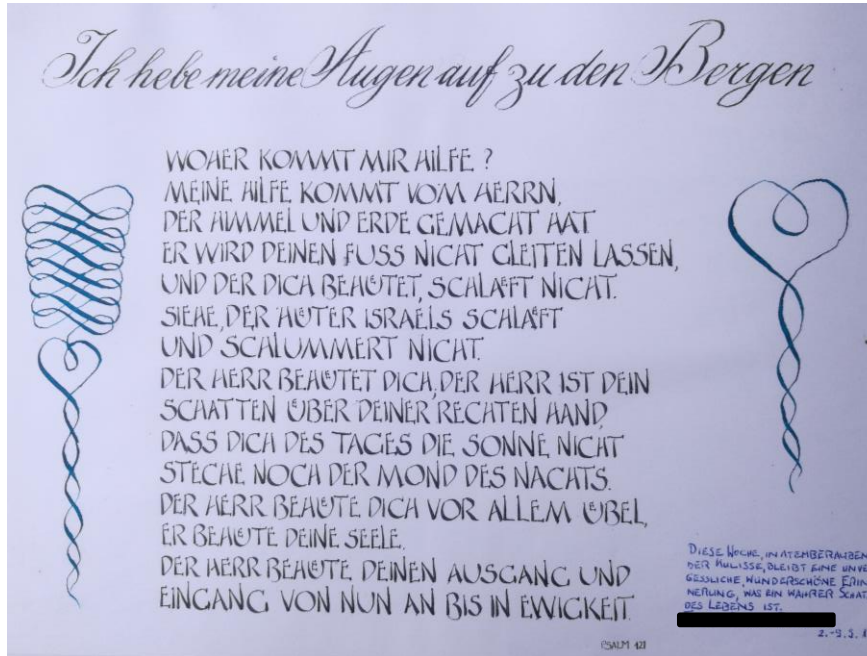 Ich hebe meine Augen auf zu den Bergen
WOHER KOMMT MIR HILFE ?
MEINE HILFE KOMMT VOM HERRN,
DER HIMMEL UND ERDE GEMACHT HAT
ER WIRD DEINEN FUSS NICHT GLEITEN LASSEN,
UND DER DICH BEHÜTET, SCHLÄFT NICHT.
SIEHE, DER HÜTER ISRAELS SCHLÄFT
UND SCHLUMMERT NICHT.
DER HERR BEHÜTET DICH, DER HERR IST DEIN
SCHATTEN ÜBER DEINER RECHTEN HAND,
DASS DICH DES TAGES DIE SONNE NICHT
STECHE NOCH DER MOND DES NACHTS.
DER HERR BEHÜTE DICH VOR ALLEM ÜBEL,
ER BEHÜTE DEINE SEELE.
DER HERR BEHÜTE DEINEN AUSGANG UND
EINGANG VON NUN AN BIS IN EWIGKEIT.
PSALM 121
DIESE WOCHE, IN ATEMBERAUBEN
DER KULISSE, BLEIBT EINE UNVE
GESSLICHE, WUNDERSCHÖNE ERIN
NERUNG, WAS EIN WAHRER SCHAT
DES LEBENS IST.
2.-9.5.